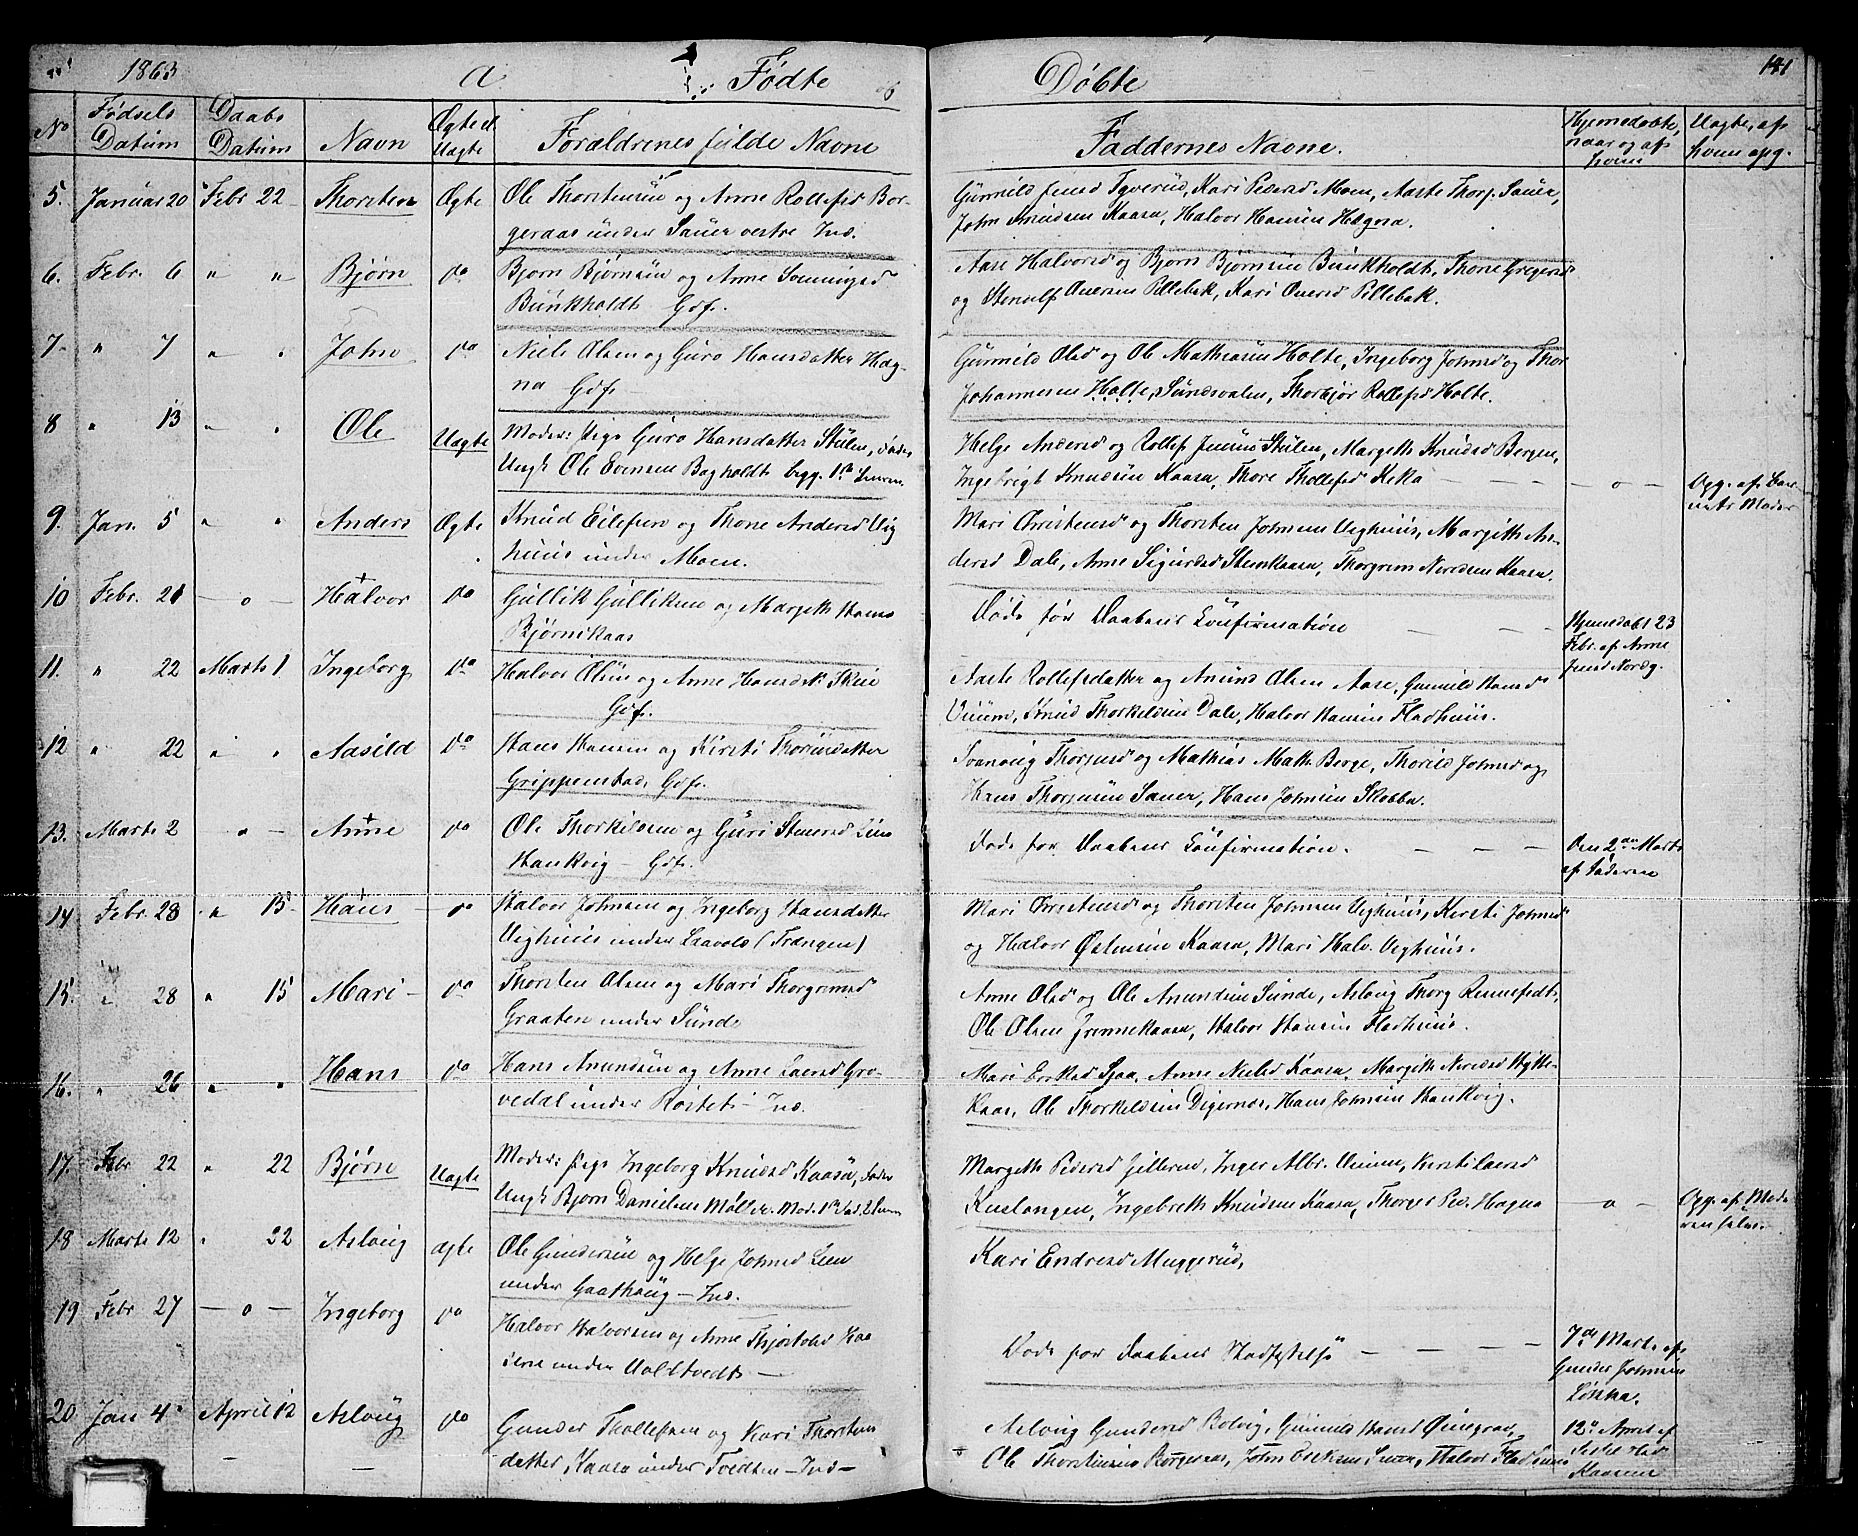 1863 a Fødte Døbte 141
No Fødsels Datum Daabs Datum Navn Ægte el. Uægte Forældrenes fulde Navne Faddernes Navne. Hjemmedøbte, naar og af hvem Uægte, af hvem opg.
5. Januar 20 Febr 22 Thorsten Ægte Ole Thorstensen og Anne Rollefsd Bor-
geraas under Sauer vestre Ind.
Gunnild Jensd Kari Pedersd Moen, Aaste Thorj. Sauer,
John Knudsen Kaasa, Halvor Hansen Hægna.
6. Febr. 6 " " Bjørn do Bjørn Bjørnsen og Anne Sveinungsd
Bunkholdt Gdf.
Aase Halvorsd og Bjørn Bjørnsen Bunkholdt, Thone Gregersd
og Stenulf Oversen Pillebak, Kari Oversd Pillebak.
7. " 7 " " John do Niels Olsen og Guro Hansdatter Hæg-
na Gdf.
Gunnild Olsd og Ole Mathiasen Holte, Ingeborg Johnsd og Thor
Johannesen Holte, Sundsvalen, Thorbjør Rollefsd Holte.
8 " 13 " " Ole Uægte Moder: Pige Guro Hansdatter Stulen, Fader
Ungk Ole Evensen Bagholdt begg. 1ste Leierm.
Helge Andersd og Rollef Jensen Stulen, Margeth Knudsd Bergen,
Ingebrigt Knudsen Kaasa, Thore Thollefsd Keka — — — — o — Opg. af Bar-
nets Moder
9. Jan. 5 " " Anders Ægte Knud Eilefsen og Thone Andersd Vig
huus under Moen.
Mari Christensd og Thorsten Johnsen Veghuus, Margith An-
dersd Dale, Anne Sigurdsd Stenkaasa, Thorgrim Neredsen Kaasa.
10 Febr. 21 — o — Halvor do Gullik Gulliksen og Margeth Hans
Bjørnskaas
Døde før Daabens Confirmation — — — Hjemmedøbt 23
Febr. af Anne
Jensd Nordg.
11. " 22 Marts 1 Ingeborg do Halvor Olsen og Anne Hansdtr Skoie
Gdf.
Aaste Rollefsdatter og Amund Olsen Aase, Gunnild Hansd
Viium, Knud Thorkildsen Dale, Halvor Hansen Fladhuus.
12 " 22 " " Aasild do Hans Hansen og Kirsti Thorinsdatter
Grippenstad, Gdf.
Svanaug Thorjusd og Mathias Math. Berge, Thorild Johnsd og
Hans Thorjusen Sauer, Hans Johnsen Skobba.
13. Marts 2 " — Anne do Ole Thorkildsen og Guri Stenersd
Hankvig — Gdf.
Døde før Daabens Confirmation. — — — Den 2den Marts
af Faderen
14 Febr. 28 " 15 Hans do Halvor Johnsen og Ingeborg Hansdatter
Veighuus under Laavold (Trængen)
Mari Christensd og Thorsten Johnsen Veghuus, Kirsti Johnsd
og Halvor Østensen Kaasa, Mari Halv. Veghuus.
15. " 28 " 15 Mari — do Thorsten Olsen og Mari Thorgrimsd
Graaten under Sunde
Anne Olsd og Ole Amundsen Sunde, Aslaug Thorg. Rennefedt,
Ole Olsen Grønnekaasa, Halvor Hansen Fladhuus.
16. " 26 " " Hans do Hans Amundsen og Anne Larsd Gro-
vedal under Rostet — Ind.
Mari Eriksd Sjaa, Anne Nielsd Kaasa, Margith Neredsd Hytte-
Kaas, Ole Thorkildsen Digernæs, Hans Johnsen Hankvig.
17. Febr 22 " 22 Bjørn Uægte Moder: Pige Ingeborg Knudsd Kaasa, Fader
Ungk Bjørn Danielsen Møl. Mod. 1ste Fad. 2 Leierm
Margeth Pedersd Jillerud, Inger Albr. Viium, Kirsti Larsd
Kuslangen, Ingebreth Knudsen Kaasa, Thorger Ped. Hægna — o — Opg. af Mode
ren selv.
18 Marts 12 " 22 Aslaug ægte Ole Gundersen og Helge Johnsd Lien
under Gaathaug — Ind.
Kari Endresd Muggerud,
19 Febr 27 — o — Ingeborg do Halvor Halvorsen og Anne Thjøstolsd Kaa
sene under Uoldtvedt —
Døde før Daabens Stadfæstelse — — — — 7de Marts af
Gunder Johnsen
Løkka.
20 Jan 4 April 12 Aslaug do Gunder Thollefsen og Kari Thorstens
datter Kaasa under Tvedten — Ind —
Aslaug Gundersd Bolvig, Gunnild Hansd
Ole Thorstensen Borgeraas, John Halvor Fladhuus 12te April af
Kaasene